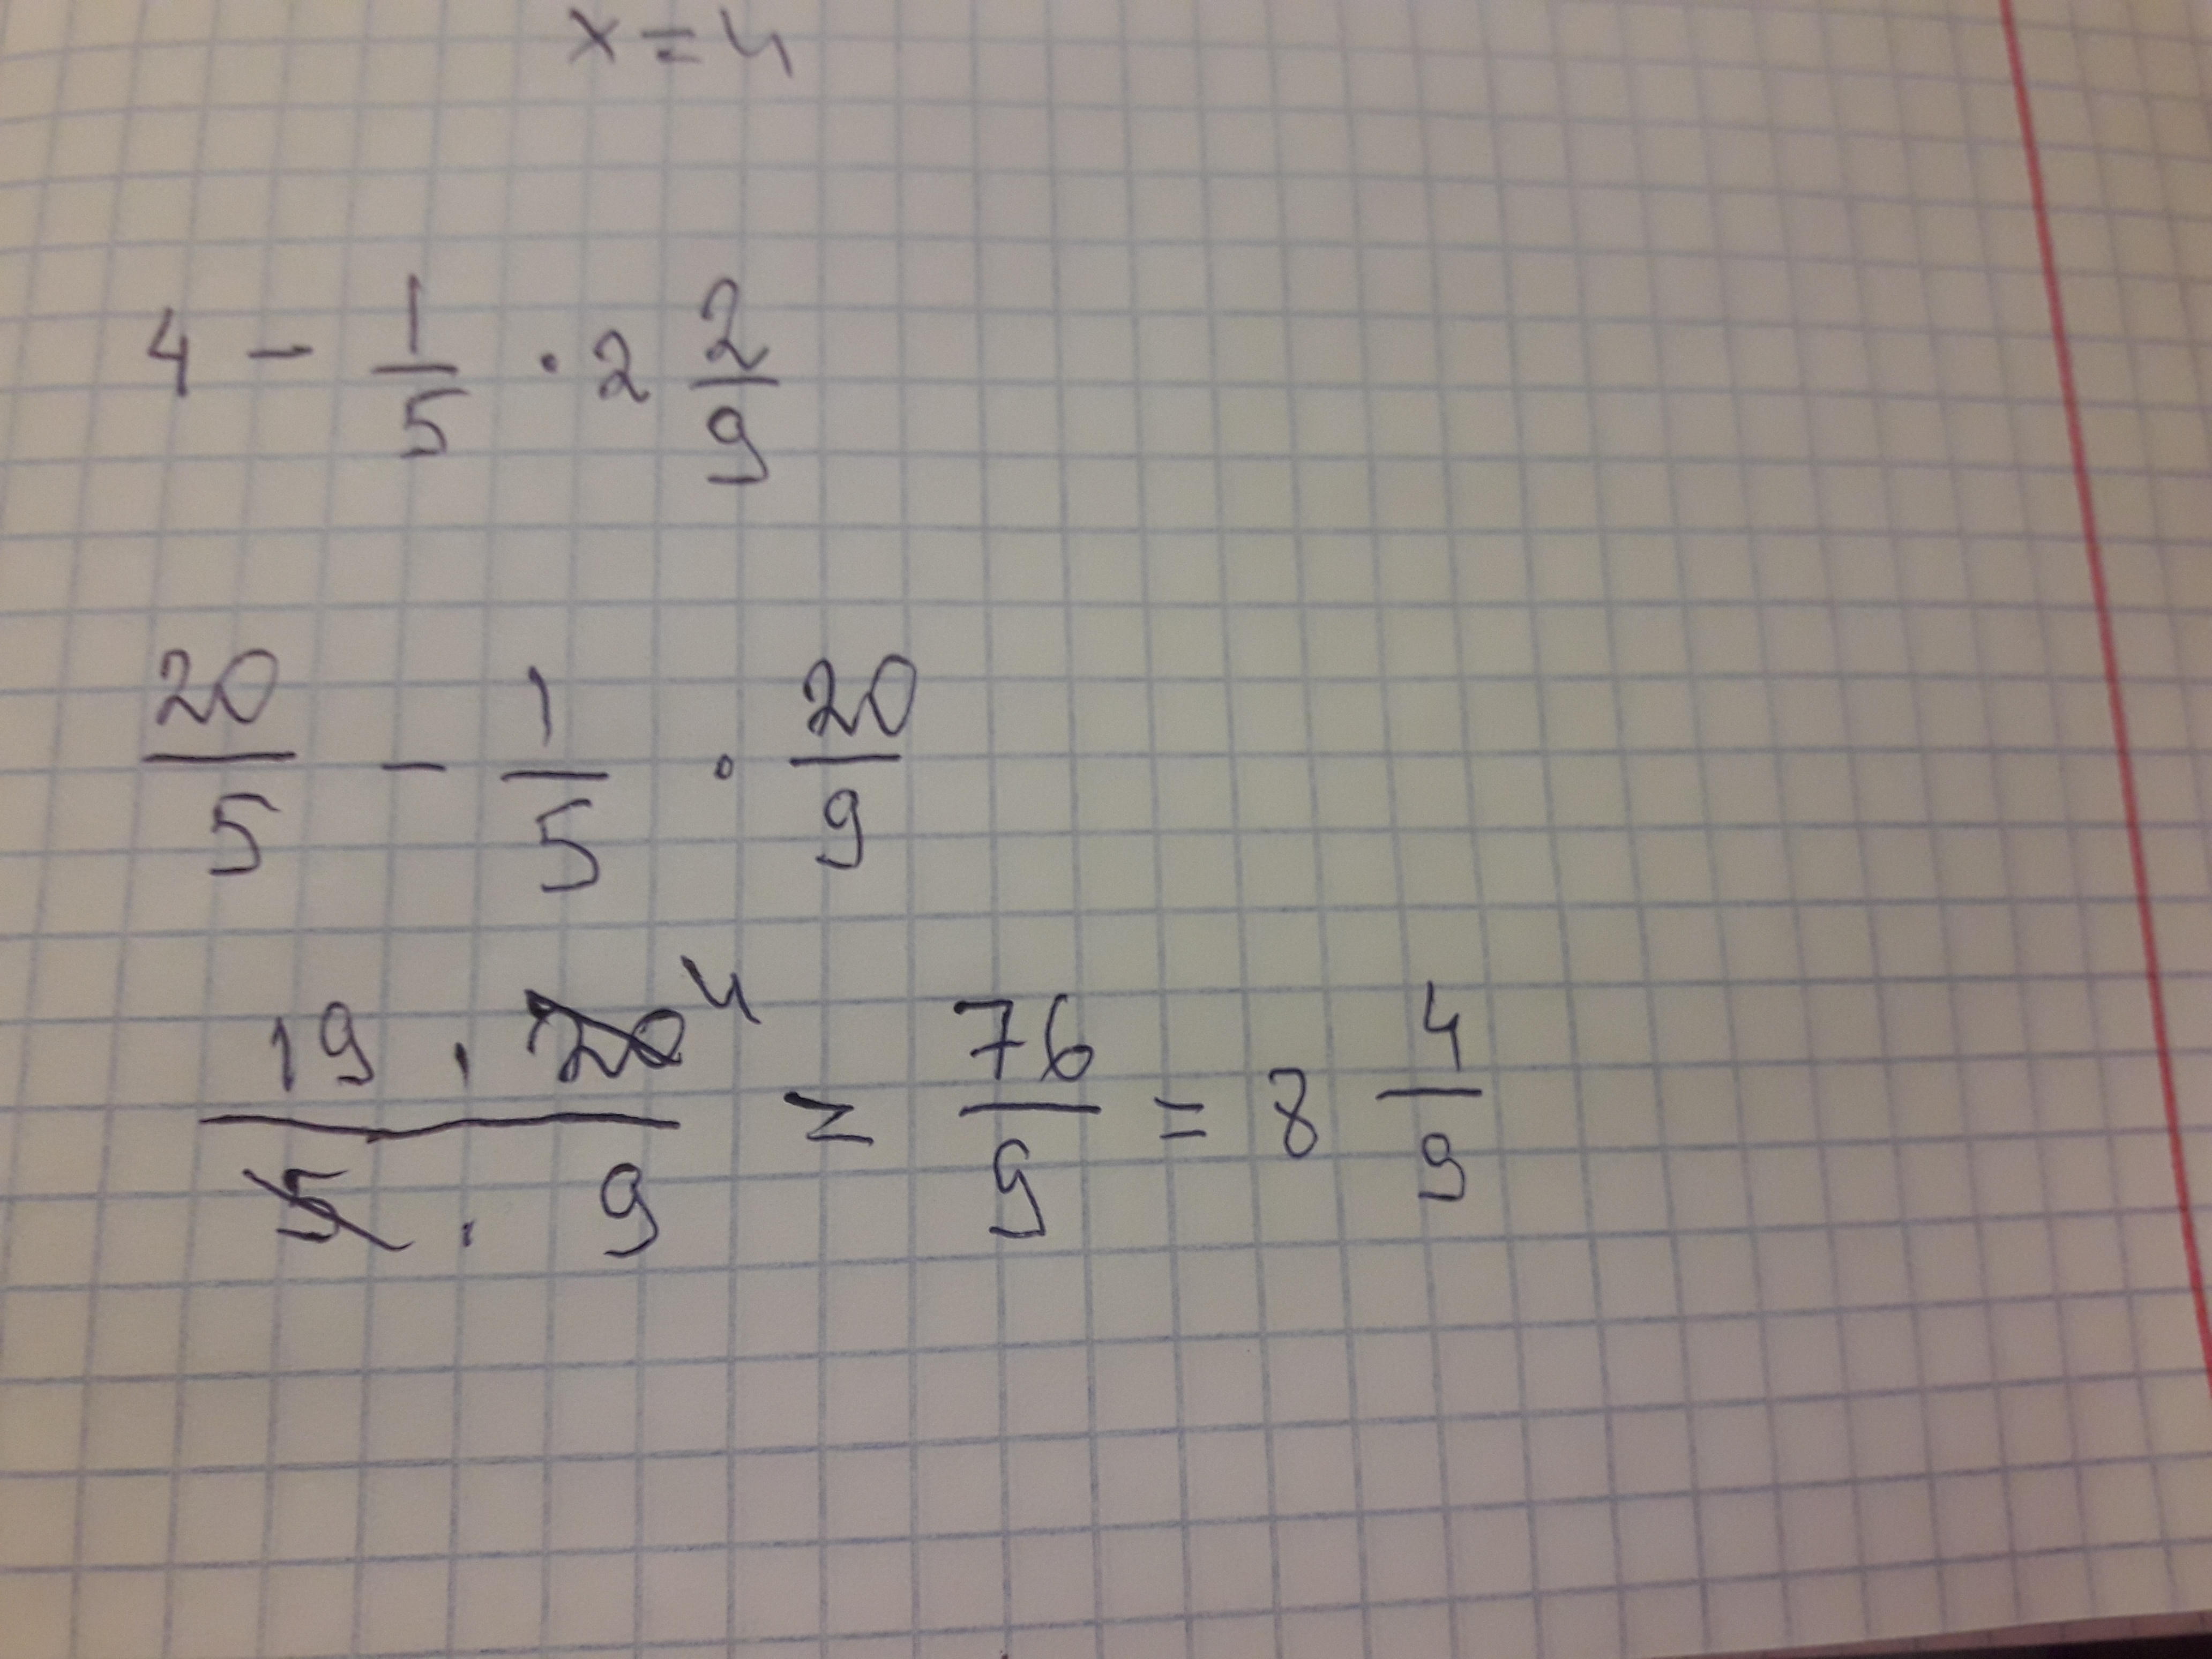 x = 4
4 - 1/5 · 2 2/9
20/5 - 1/5 · 20/9
19 · 20 4 / 5 · 9 = 76/9 = 8 4/9